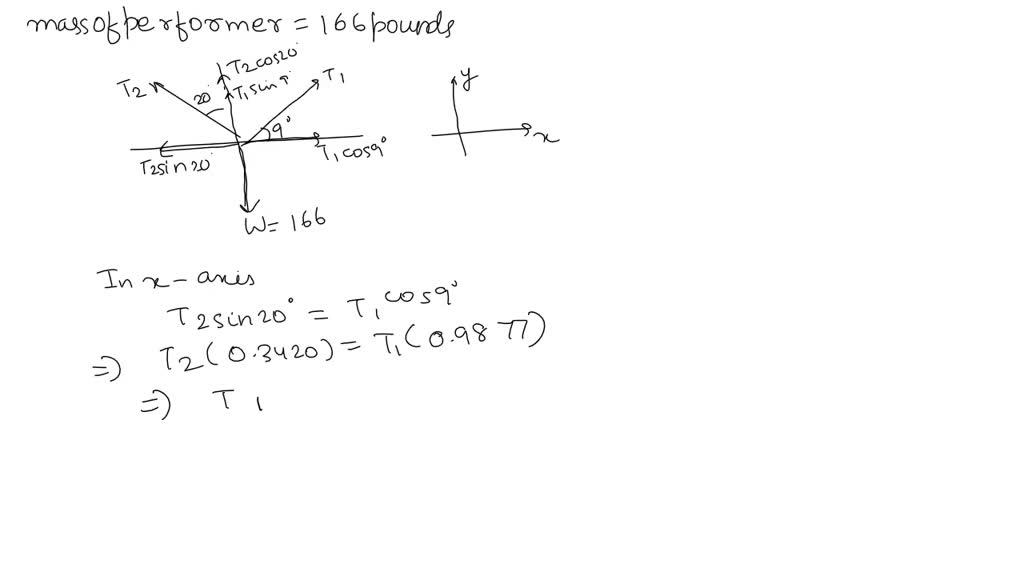 mass of performer = 166 pounds
T2cos20°
T2
20°
T1sin9°
T1
9°
T2sin20°
T1cos9°
W= 166
y
x
In x-axis
T2sin20° = T1cos9°
=) T2(0.3420) = T1(0.9877)
=) T1